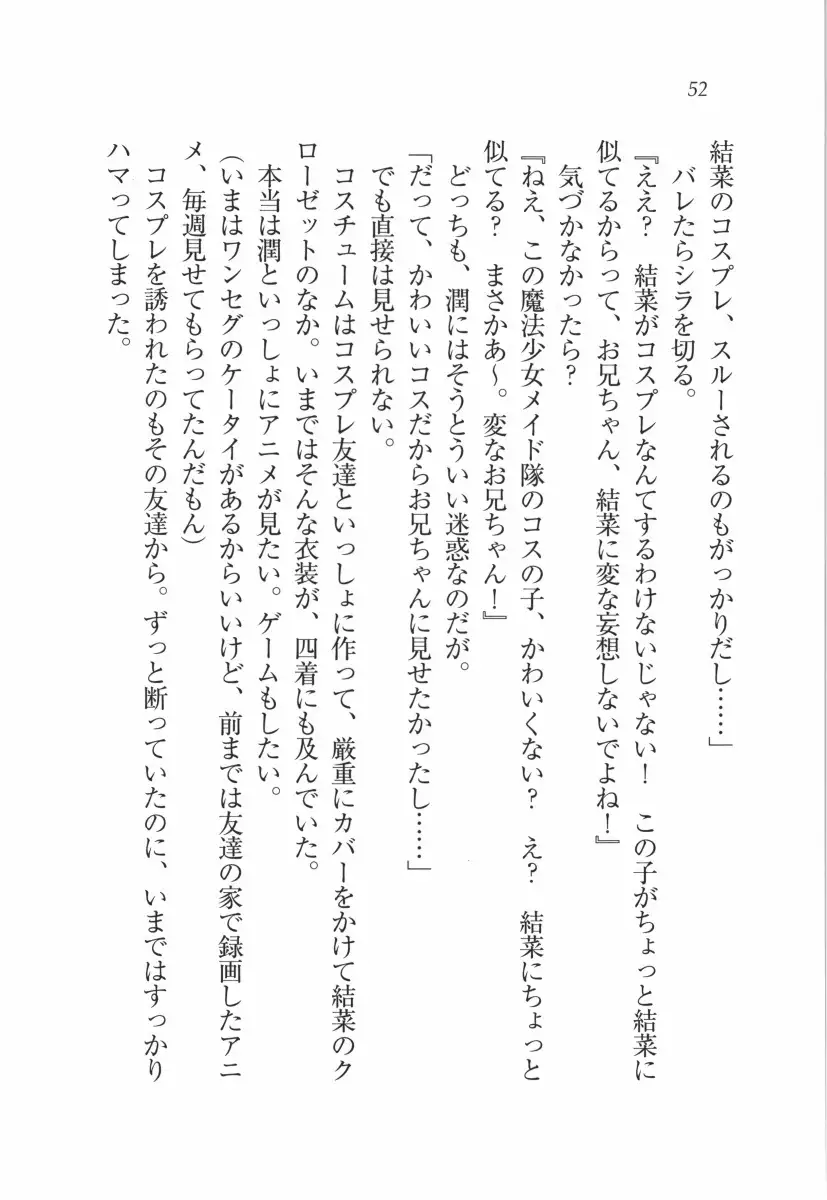 52
結菜のコスプレ、スルーされるのもがっかりだし……」
バレたらシラを切る。
『ええ？　結菜がコスプレなんてするわけないじゃない！　この子がちょっと結菜に
似てるからって、お兄ちゃん、結菜に変な妄想しないでよね！』
気づかなかったら？
『ねえ、この魔法少女メイド隊のコスの子、かわいくない？　え？　結菜にちょっと
似てる？　まさかあ～。変なお兄ちゃん！』
どっちも、潤にはそうとういい迷惑なのだが。
「だって、かわいいコスだからお兄ちゃんに見せたかったし……」
でも直接は見せられない。
コスチュームはコスプレ友達といっしょに作って、厳重にカバーをかけて結菜のク
ローゼットのなか。いまではそんな衣装が、四着にも及んでいた。
本当は潤といっしょにアニメが見たい。ゲームもしたい。
（いまはワンセグのケータイがあるからいいけど、前までは友達の家で録画したアニ
メ、毎週見せてもらってたんだもん）
コスプレを誘われたのもその友達から。ずっと断っていたのに、いまではすっかり
ハマってしまった。